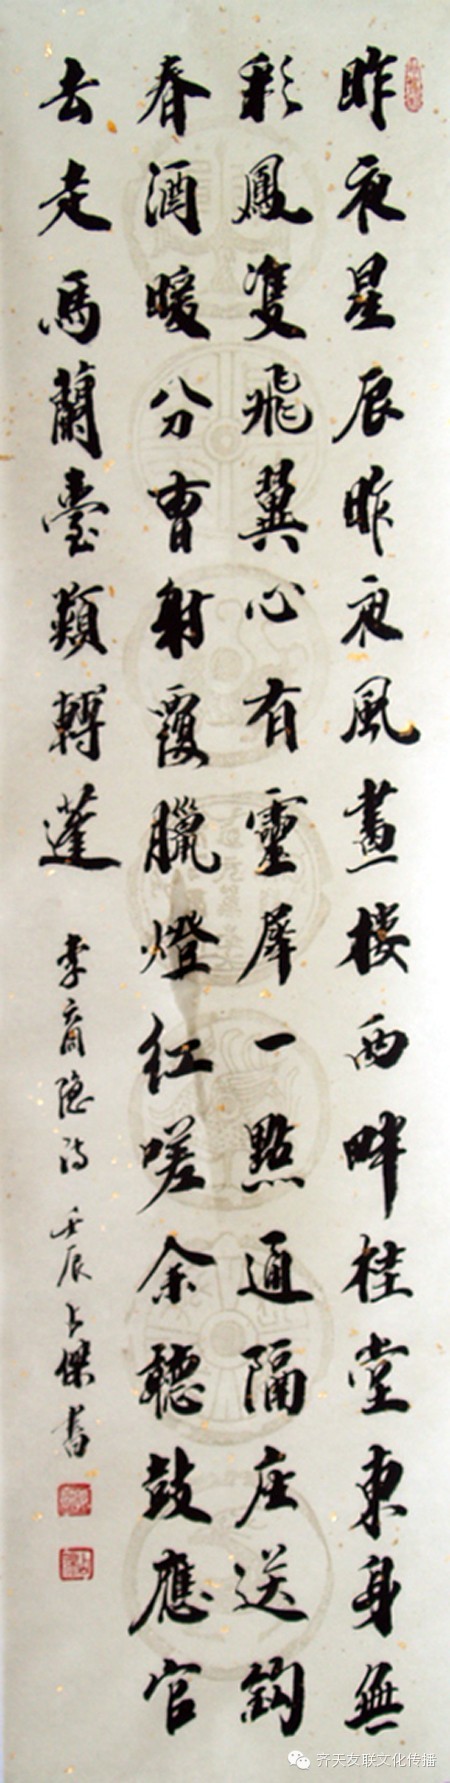 昨夜星辰昨夜風畫樓西畔桂堂東身無
彩鳳雙飛翼心有靈犀一點通隔座送鈎
春酒暖分曹射覆臘燈紅嗟余聽鼓應官
去走馬蘭臺類轉蓬
李商隱詩 壬辰 上傑書
齐天友联文化传播